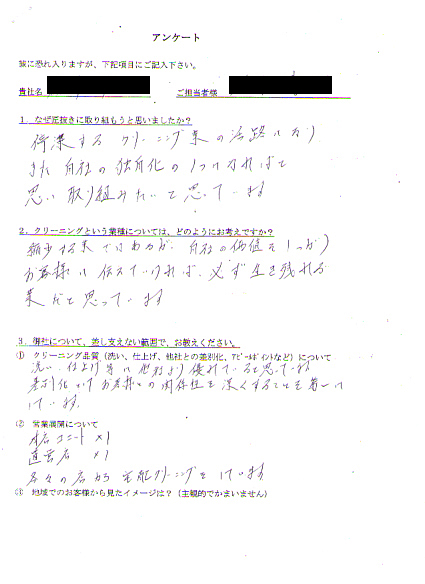 アンケート
誠に恐れ入りますが、下記項目にご記入下さい。
貴社名 ご担当者様
1. なぜ染抜きに取り組もうと思いましたか？
する クリーニング業の活路になり
また 自社の独自化の1つになればと
思い 取り組みたいと思っています
2. クリーニングという業種については、どのようにお考えですか？
する業ではあるが、自社の価値をしっかり
お客様に伝えていければ、必ず生き残れる
業だと思っています
3. 御社について、差し支えない範囲で、お教えください。
① クリーニング品質（洗い、仕上げ、他社との差別化、ｱﾋﾟｰﾙﾎﾟｲﾝﾄなど）について
洗い、仕上げ等は他社より優れていると思っています
差別化 お客様との関係性を深くすることを第一に
しています。
② 営業展開について
本店ユニット ×1
直営店 ×1
各々の店から宅配クリーニングをしています
③ 地域でのお客様から見たイメージは？（主観的でかまいません）